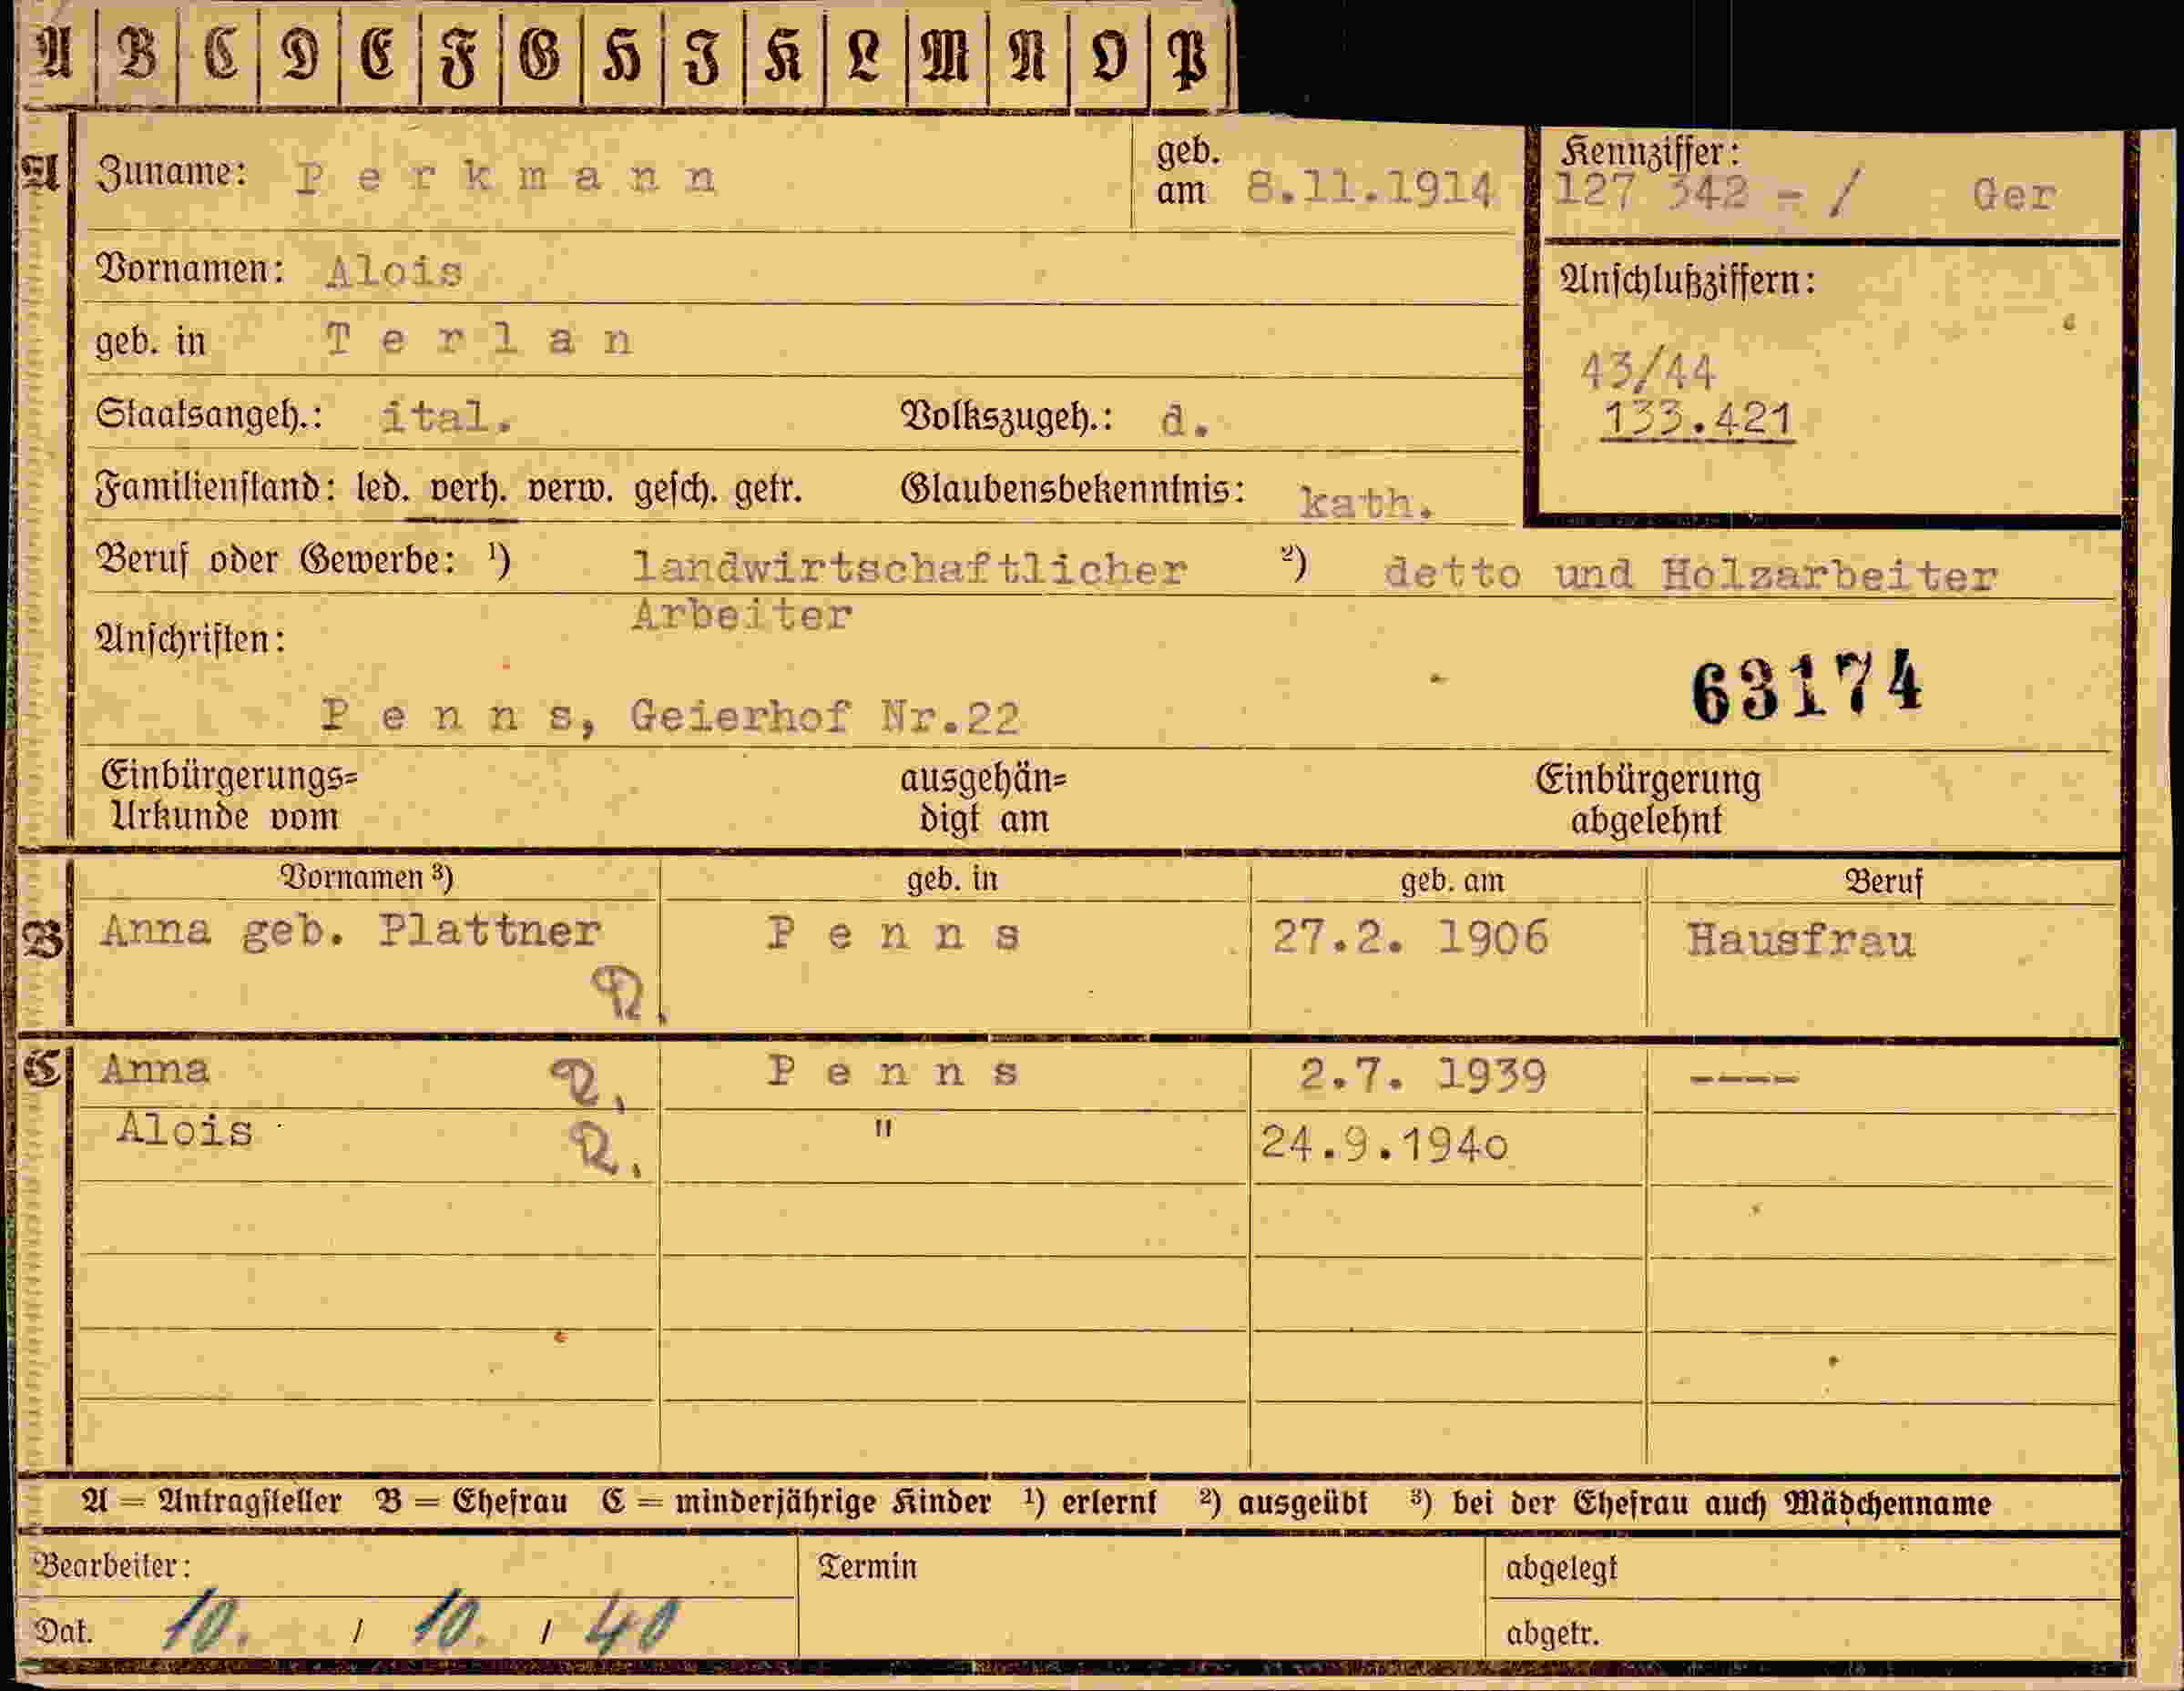 A B C D E F G H I K L M N O P
A Zuname: Perkmann geb. am 8.11.1914
Kennziffer: 127 342 - / Ger
Vornamen: Alois
Anschlußziffern:
geb. in Terlan
43/44
133.421
Staatsangeh.: ital. Volkszugeh.: d.
Familienstand: led. verh. verw. gesch. getr. Glaubensbekenntnis: kath.
Beruf oder Gewerbe: ¹) landwirtschaftlicher ²) detto und Holzarbeiter
Arbeiter
Anschriften:
63174
Penns, Geierhof Nr.22
Einbürgerungs= ausgehän= Einbürgerung
Urkunde vom digt am abgelehnt
Vornamen ³) geb. in geb. am Beruf
B Anna geb. Plattner Penns 27.2. 1906 Hausfrau
C Anna Penns 2.7. 1939 ----
Alois " 24.9.1940
A = Antragsteller B = Ehefrau C = minderjährige Kinder ¹) erlernt ²) ausgeübt ³) bei der Ehefrau auch Mädchenname
Bearbeiter: Termin abgelegt
Dat. 10. / 10. / 40 abgetr.